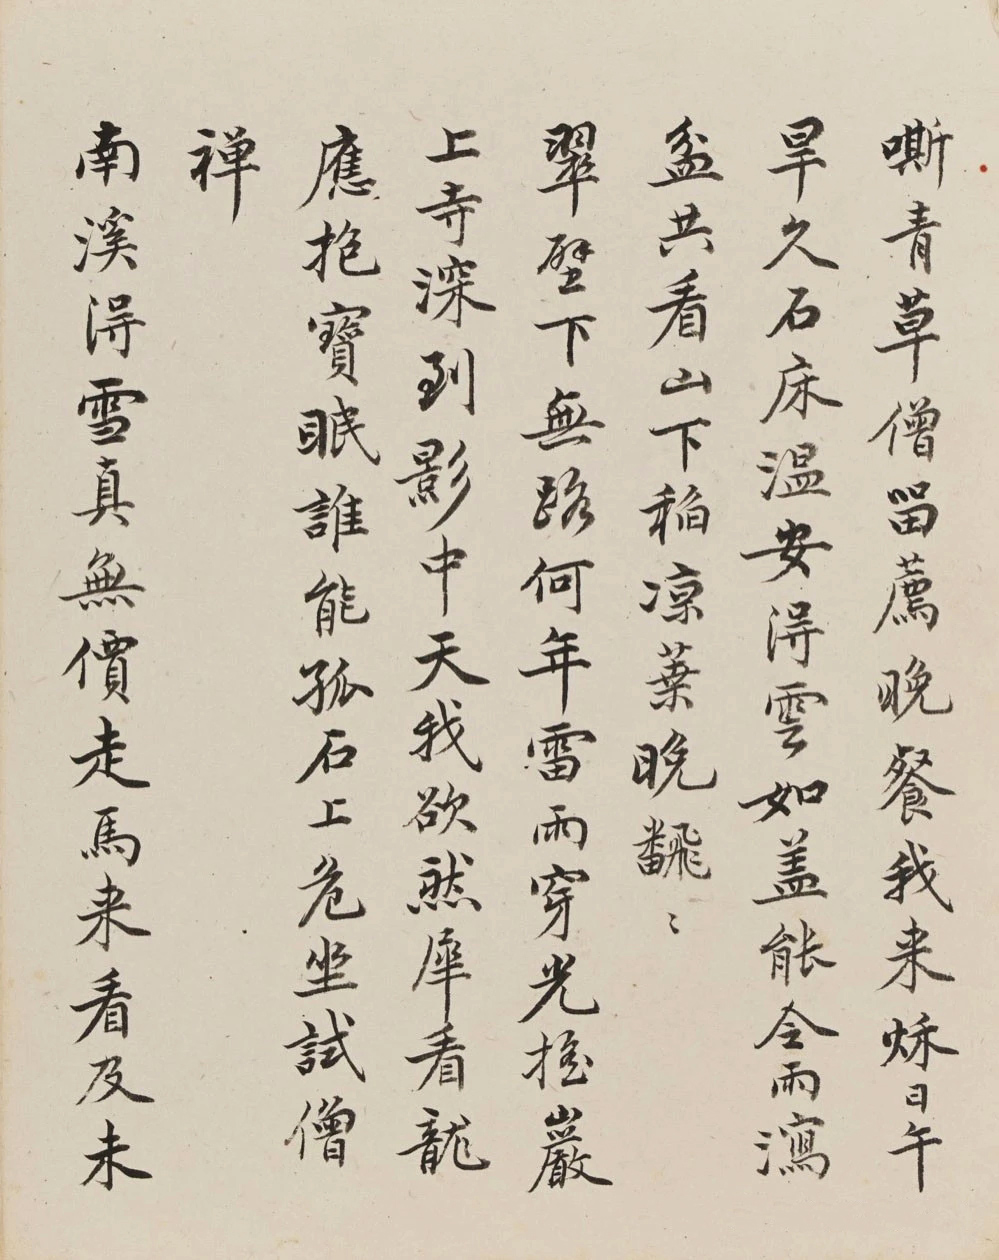 嘶青草僧留薦晚餐我来秌日午
旱久石床温安得雲如盖能令雨瀉
盆共看山下稻凉葉晚飜〻
翠壁下無路何年雷雨穿光摇巖
上寺深到影中天我欲然犀看龍
應抱寶眠誰能孤石上危坐試僧
禅
南溪得雪真無價走馬来看及未